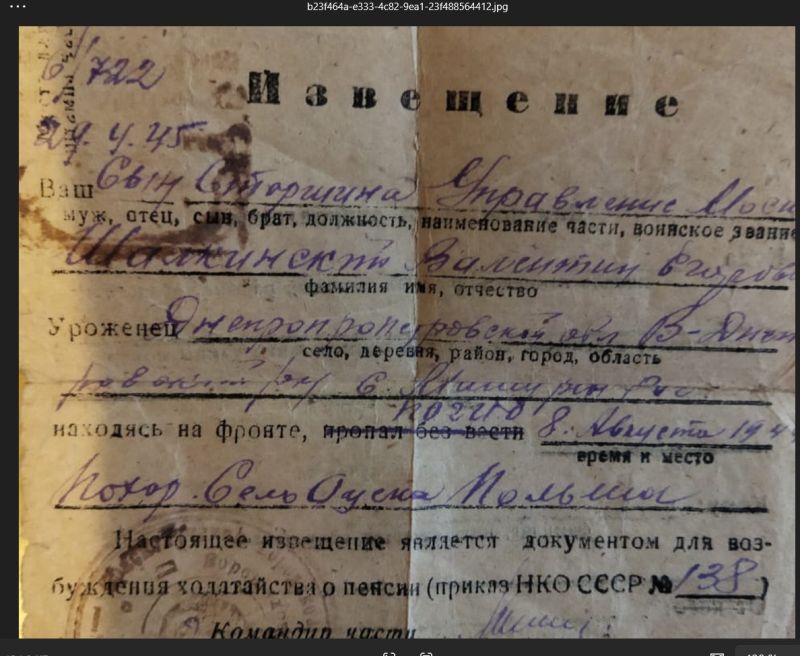 b23f464a-e333-4c82-9ea1-23f488564412.jpg
722
Извещение
29.4.45
Ваш Сын Старшина Управление
муж, отец, сын, брат, должность, наименование части, воинское звание
Шалкинский Валентин
фамилия имя, отчество
Уроженец обл В-Днеп
село, деревня, район, город, область
ровский с. Мишурин Рог
находясь на фронте, пропал без вести погиб 8. Августа 194
время и место
похор. Село Оуска Польша
Настоящее извещение является документом для воз-
буждения ходатайства о пенсии (приказ НКО СССР № 138)
Командир части